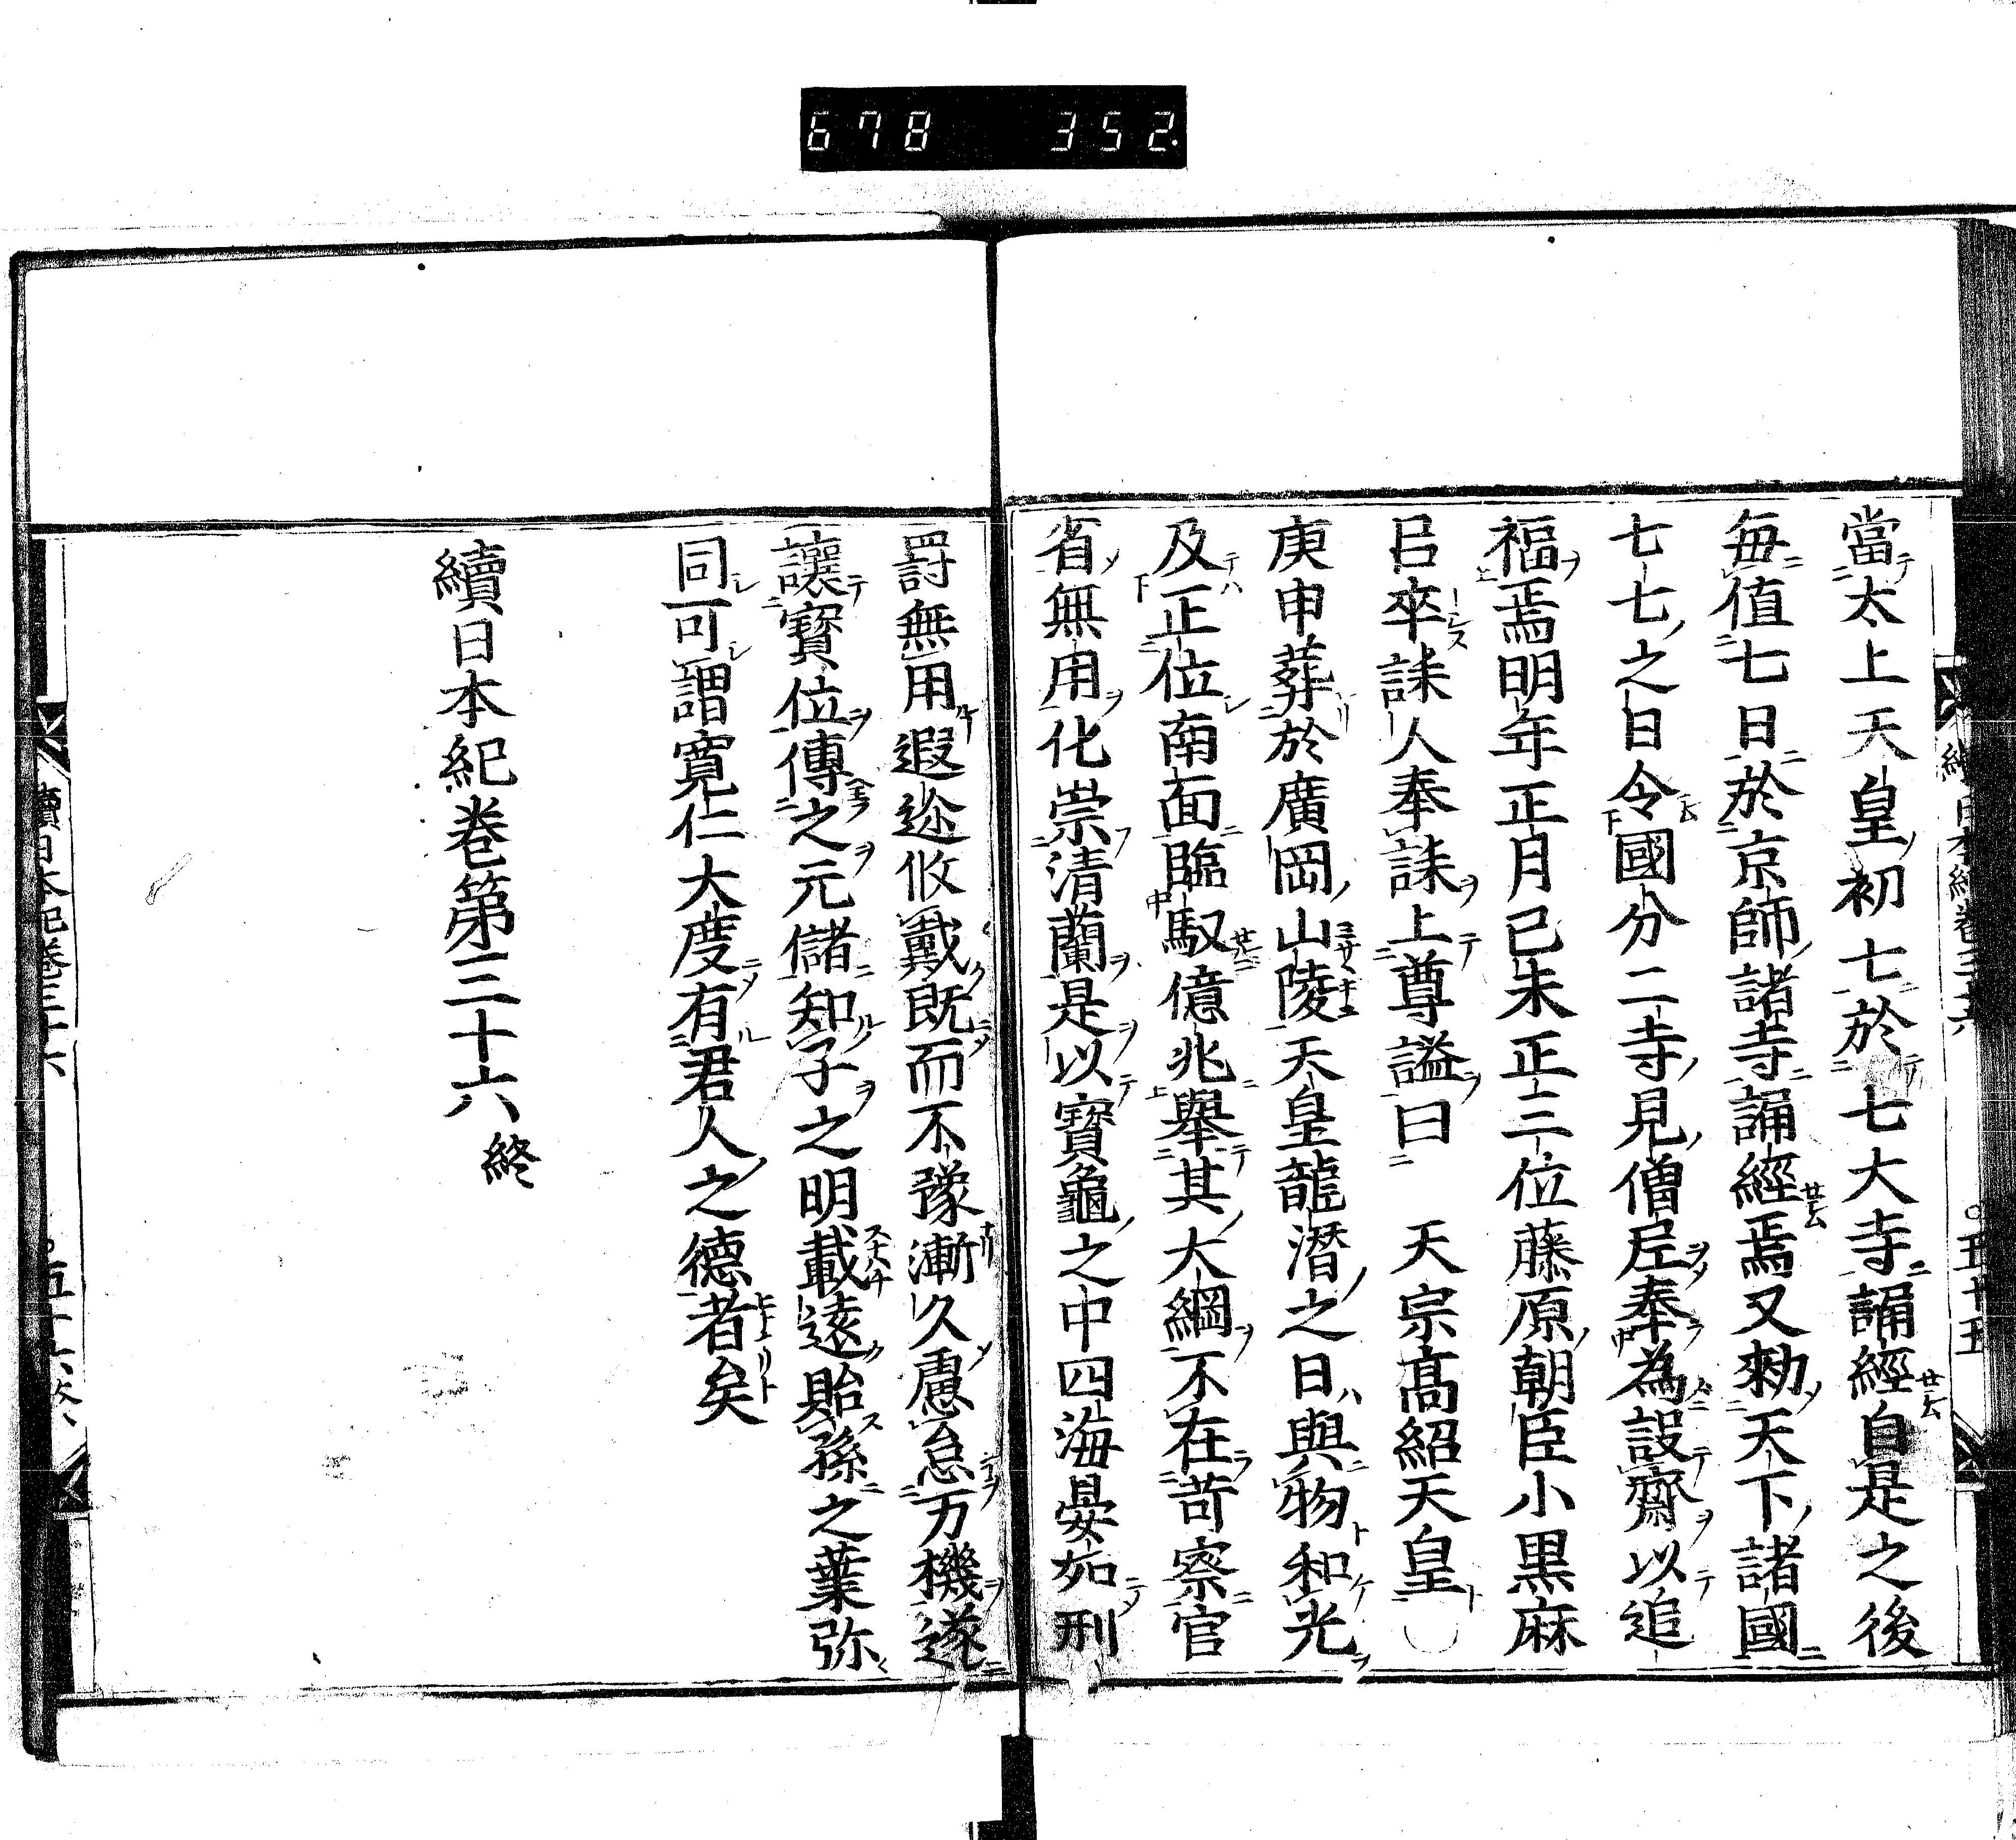 678 352.
當太上天皇初七於七大寺誦經自是之後
每值七日於京師諸寺誦經焉又勑天下諸國
七七之日令國分二寺見僧尼奉為設齋以追
福焉明年正月己未正三位藤原朝臣小黒麻
呂率誄人奉誄上尊謚曰 天宗髙紹天皇
庚申葬於廣岡山陵天皇龍潛之日與物和光
及正位南面臨馭億兆舉其大綱不在苛察官
省無用化崇清蘭是以寶龜之中四海晏如刑
罸無用遐迩攸戴既而不豫漸久慮怠万機遂
讓寶位傳之元儲知子之明載遠貽孫之葉弥
同可謂寬仁大度有君人之德者矣
續日本紀卷第三十六終